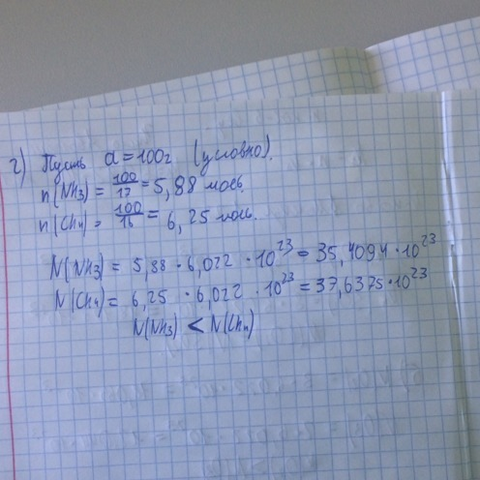 г) Пусть a = 100г (условно).
n(NH₃) = 100/17 = 5,88 моль
n(CH₄) = 100/16 = 6,25 моль.
N(NH₃) = 5,88 · 6,022 · 10²³ = 35,4094 · 10²³
N(CH₄) = 6,25 · 6,022 · 10²³ = 37,6375 · 10²³
N(NH₃) < N(CH₄)